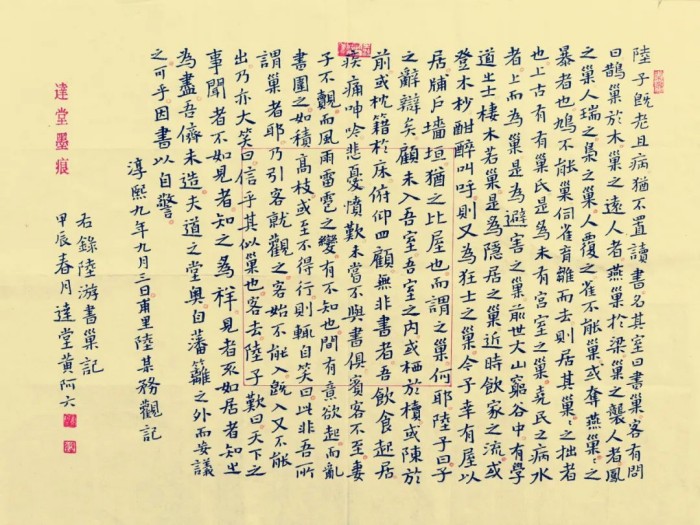 陸子既老且病猶不置讀書名其室曰書巢客有問
曰鵲巢於木巢之遠人者燕巢於梁巢之襲人者鳳
之巢人瑞之梟之巢人覆之雀不能巢或奪燕巢〻之
暴者也鳩不能巢伺雀育雛而去則居其巢〻之拙者
也上古有有巢氏是為未有宮室之巢堯民之病水
者上而為巢是為避害之巢前世大山窮谷中有學
道之士棲木若巢是為隱居之巢近時飲家之流或
登木杪酣醉叫呼則又為狂士之巢今子幸有屋以
居牖戶墻垣猶之比屋也而謂之巢何耶陸子曰子
之辭辯矣顧未入吾室吾室之内或栖於櫝或陳於
前或枕籍於床俯仰四顧無非書者吾飲食起居
疾痛呻吟悲憂憤歎未嘗不與書俱賓客不至妻
子不覿而風雨雷雹之變有不知也間有意欲起而亂
書圍之如積高枝或至不得行則輒自笑曰此非吾所
謂巢者耶乃引客就觀之客始不能入既入又不能
出乃亦大笑曰信乎其似巢也客去陸子歎曰天下之
事聞者不如見者知之為祥見者不如居者知之
為盡吾儕未造夫道之堂奧自藩籬之外而妄議
之可乎因書以自警
淳熙九年九月三日甫里陸某務觀記
右錄陸游書巢記
甲辰春月達堂黃阿六
達堂墨痕